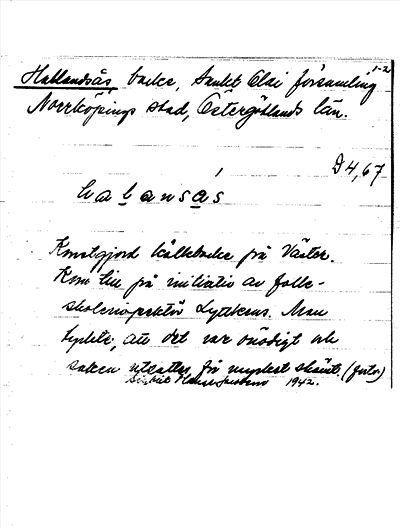 1-2
Hallandsås, backe, Sankt Olai församling
Norrköpings stad, Östergötlands län.
D 4,67
halansås
Konstgjord kälkbacke på Väster.
Kom till på initiativ av folk-
skoleinspektör Lyttkens. Man
tyckte, att det var onödigt och
saken utsattes för mycket skämt. (forts)
1942.